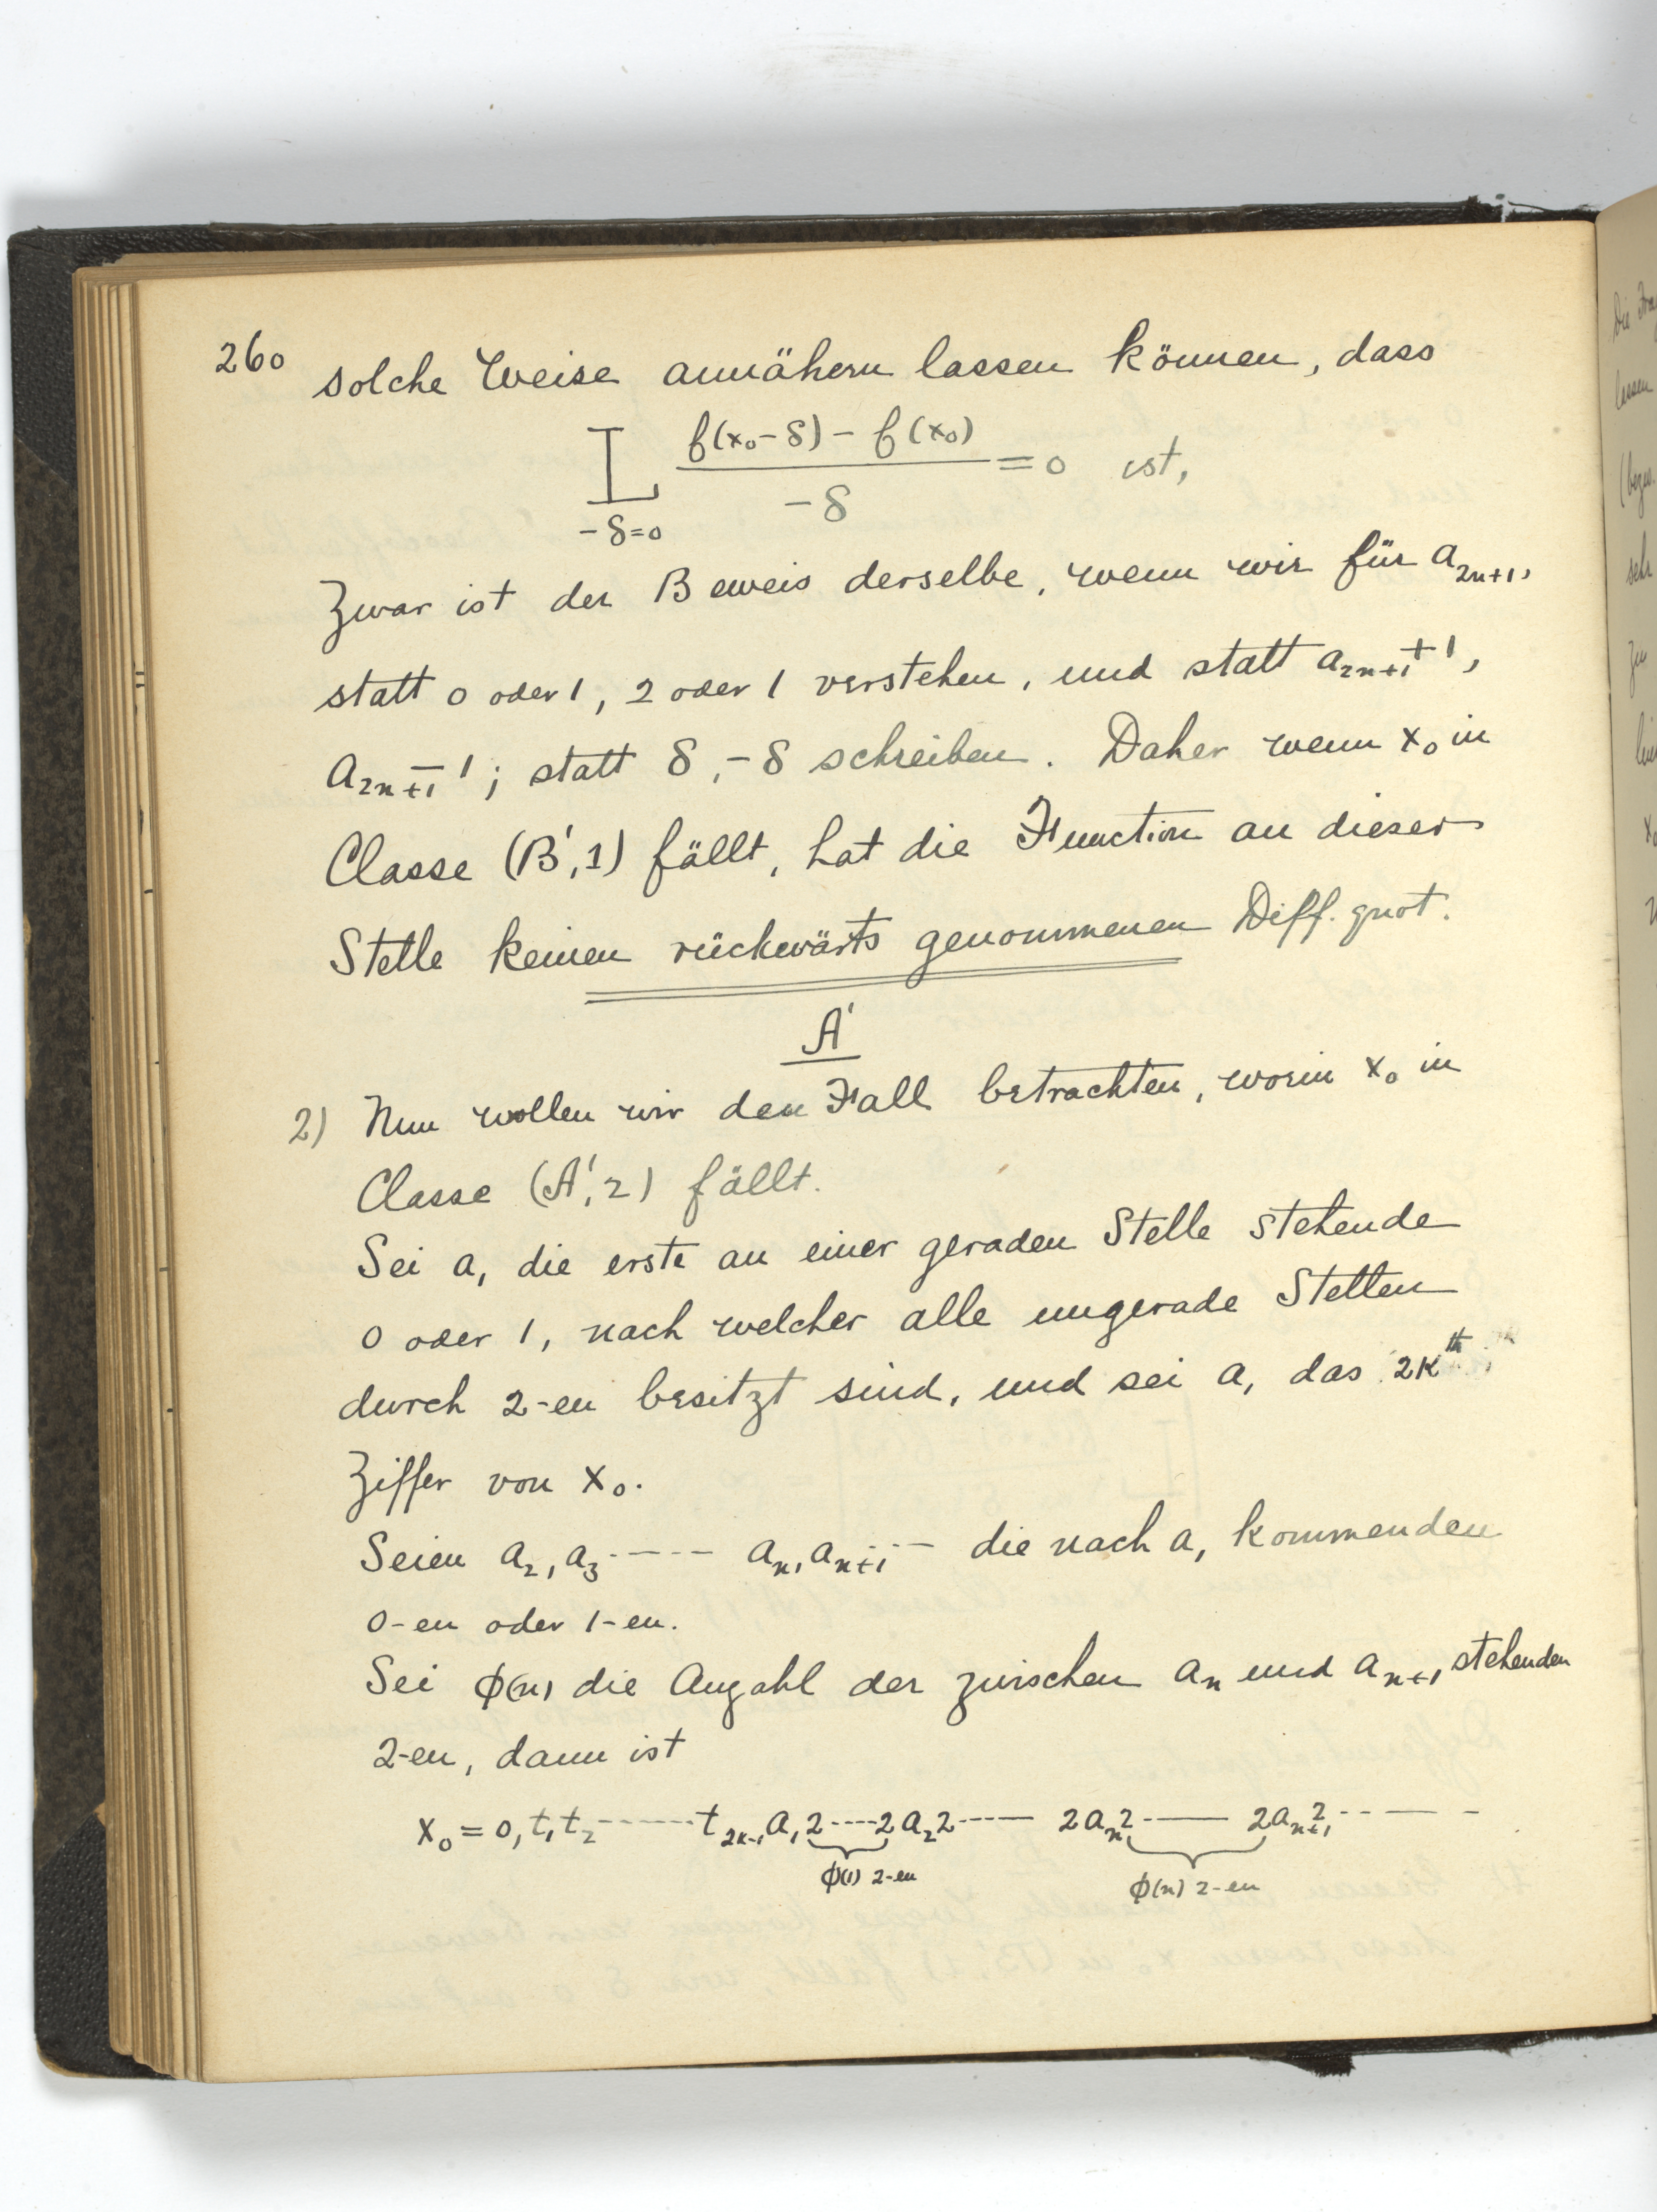 260 solche Weise annähern lassen können, dass
L f(x₀-δ) - f(x₀) / -δ = 0 ist,
-δ=0
Zwar ist der Beweis derselbe, wenn wir für a₂ₙ₊₁,
statt 0 oder 1, 2 oder 1 verstehen, und statt a₂ₙ₊₁+1,
a₂ₙ₊₁-1; statt δ, -δ schreiben. Daher wenn x₀ in
Classe (B',1) fällt, hat die Function an dieser
Stelle keinen rückwärts genommenen Diff. quot.
A'
2) Nun wollen wir den Fall betrachten, worin x₀ in
Classe (A',2) fällt.
Sei a₁ die erste an einer geraden Stelle stehende
0 oder 1, nach welcher alle ungerade Stellen
durch 2-en besitzt sind, und sei a₁ das 2kth
Ziffer von x₀.
Seien a₂, a₃ ---- aₙ, aₙ₊₁ -- die nach a₁ kommenden
0-en oder 1-en.
Sei ϕ(n) die Anzahl der zwischen aₙ und aₙ₊₁ stehenden
2-en, dann ist
x₀ = 0, t₁ t₂ ------ t₂ₖ₋₁ a₁ 2----2 a₂ 2---- 2 aₙ 2---- 2 aₙ₊₁ 2-----
ϕ(1) 2-en ϕ(n) 2-en